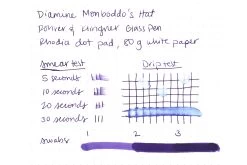 Diamine Monboddo's Hat
Rohrer & Klingner Glass Pen
Rhodia dot pad, 80g white paper
Smear test Drip test
5 seconds
10 seconds
20 seconds
30 seconds
Swabs 1 2 3